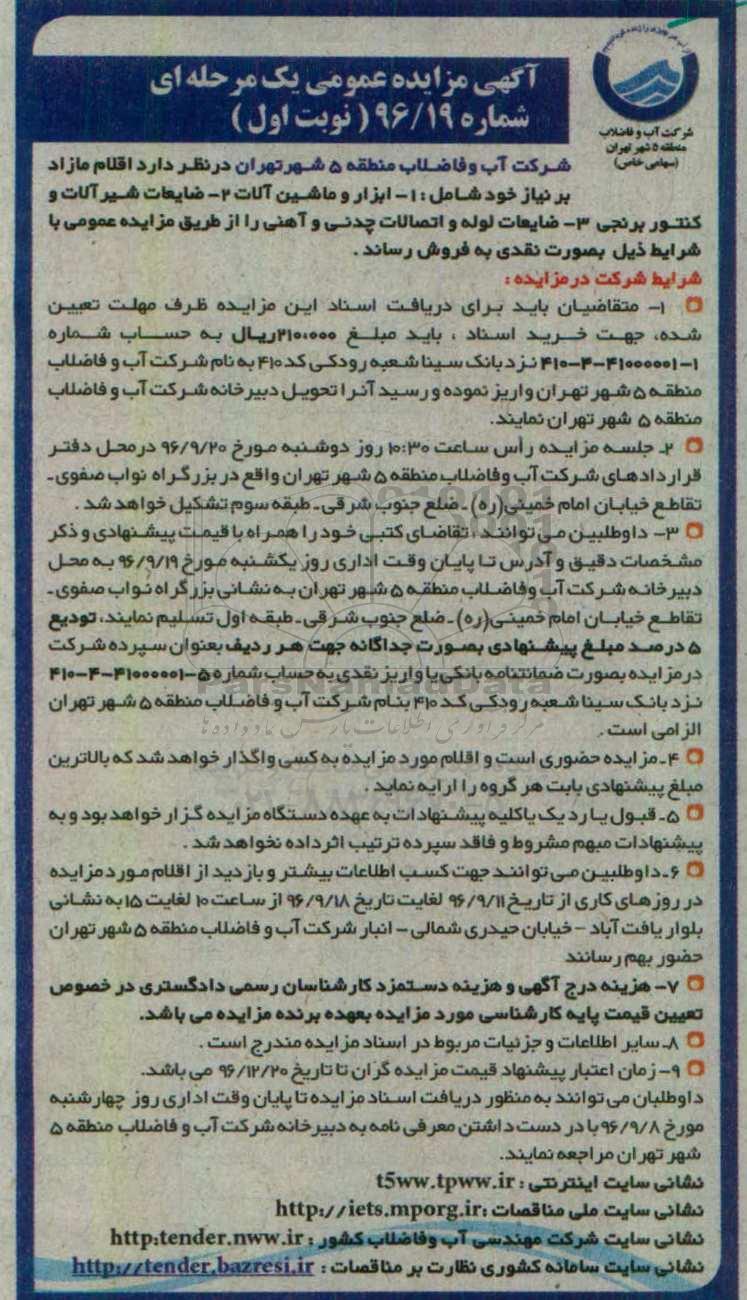 شرکت آب و فاضلاب
منطقه ۵ شهر تهران
(سهامی خاص)
آگهی مزایده عمومی یک مرحله ای
شماره ۹۶/۱۹ ( نوبت اول )
شرکت آب وفاضلاب منطقه ۵ شهرتهران درنظر دارد اقلام مازاد
بر نیاز خود شامل : ۱- ابزار و ماشین آلات ۲- ضایعات شیرآلات و
کنتور برنجی ۳- ضایعات لوله و اتصالات چدنی و آهنی را از طریق مزایده عمومی با
شرایط ذیل بصورت نقدی به فروش رساند .
شرایط شرکت درمزایده :
۱- متقاضیان باید برای دریافت اسناد این مزایده ظرف مهلت تعیین
شده، جهت خرید اسناد ، باید مبلغ ۲۱۰،۰۰۰ریال به حساب شماره
۱-۴۱۰۰۰۰۰۱-۴-۴۱۰ نزد بانک سینا شعبه رودکی کد ۴۱۰ به نام شرکت آب و فاضلاب
منطقه ۵ شهر تهران واریز نموده و رسید آنرا تحویل دبیرخانه شرکت آب و فاضلاب
منطقه ۵ شهر تهران نمایند.
۲ـ جلسه مزایده رأس ساعت ۱۰:۳۰ روز دوشنبه مورخ ۹۶/۹/۲۰ درمحل دفتر
قراردادهای شرکت آب وفاضلاب منطقه ۵ شهر تهران واقع در بزرگراه نواب صفوی ـ
تقاطع خیابان امام خمینی(ره) ـ ضلع جنوب شرقی ـ طبقه سوم تشکیل خواهد شد .
۳- داوطلبین می توانند ، تقاضای کتبی خود را همراه با قیمت پیشنهادی و ذکر
مشخصات دقیق و آدرس تا پایان وقت اداری روز یکشنبه مورخ ۹۶/۹/۱۹ به محل
دبیرخانه شرکت آب وفاضلاب منطقه ۵ شهر تهران به نشانی بزرگراه نواب صفوی ـ
تقاطع خیابان امام خمینی(ره) ـ ضلع جنوب شرقی ـ طبقه اول تسلیم نمایند، تودیع
۵ درصد مبلغ پیشنهادی بصورت جداگانه جهت هر ردیف بعنوان سپرده شرکت
درمزایده بصورت ضمانتنامه بانکی یا واریز نقدی به حساب شماره ۵-۴۱۰۰۰۰۰۱-۴-۴۱۰
نزد بانک سینا شعبه رودکی کد ۴۱۰ بنام شرکت آب و فاضلاب منطقه ۵ شهر تهران
الزامی است .
۴ـ مزایده حضوری است و اقلام مورد مزایده به کسی واگذار خواهد شد که بالاترین
مبلغ پیشنهادی بابت هر گروه را ارایه نماید .
۵ـ قبول یا رد یک یاکلیه پیشنهادات به عهده دستگاه مزایده گزار خواهد بود و به
پیشنهادات مبهم مشروط و فاقد سپرده ترتیب اثرداده نخواهد شد .
۶ـ داوطلبین می توانند جهت کسب اطلاعات بیشتر و بازدید از اقلام مورد مزایده
در روزهای کاری از تاریخ ۹۶/۹/۱۱ لغایت تاریخ ۹۶/۹/۱۸ از ساعت ۱۰ لغایت ۱۵ به نشانی
بلوار یافت آباد - خیابان حیدری شمالی - انبار شرکت آب و فاضلاب منطقه ۵ شهر تهران
حضور بهم رسانند
۷- هزینه درج آگهی و هزینه دستمزد کارشناسان رسمی دادگستری در خصوص
تعیین قیمت پایه کارشناسی مورد مزایده بعهده برنده مزایده می باشد.
۸ـ سایر اطلاعات و جزئیات مربوط در اسناد مزایده مندرج است .
۹- زمان اعتبار پیشنهاد قیمت مزایده گران تا تاریخ ۹۶/۱۲/۲۰ می باشد.
داوطلبان می توانند به منظور دریافت اسناد مزایده تا پایان وقت اداری روز چهارشنبه
مورخ ۹۶/۹/۸ با در دست داشتن معرفی نامه به دبیرخانه شرکت آب و فاضلاب منطقه ۵
شهر تهران مراجعه نمایند.
نشانی سایت اینترنتی : t5ww.tpww.ir
نشانی سایت ملی مناقصات : http://iets.mporg.ir
نشانی سایت شرکت مهندسی آب وفاضلاب کشور : http:tender.nww.ir
نشانی سایت سامانه کشوری نظارت بر مناقصات : http://tender.bazresi.ir